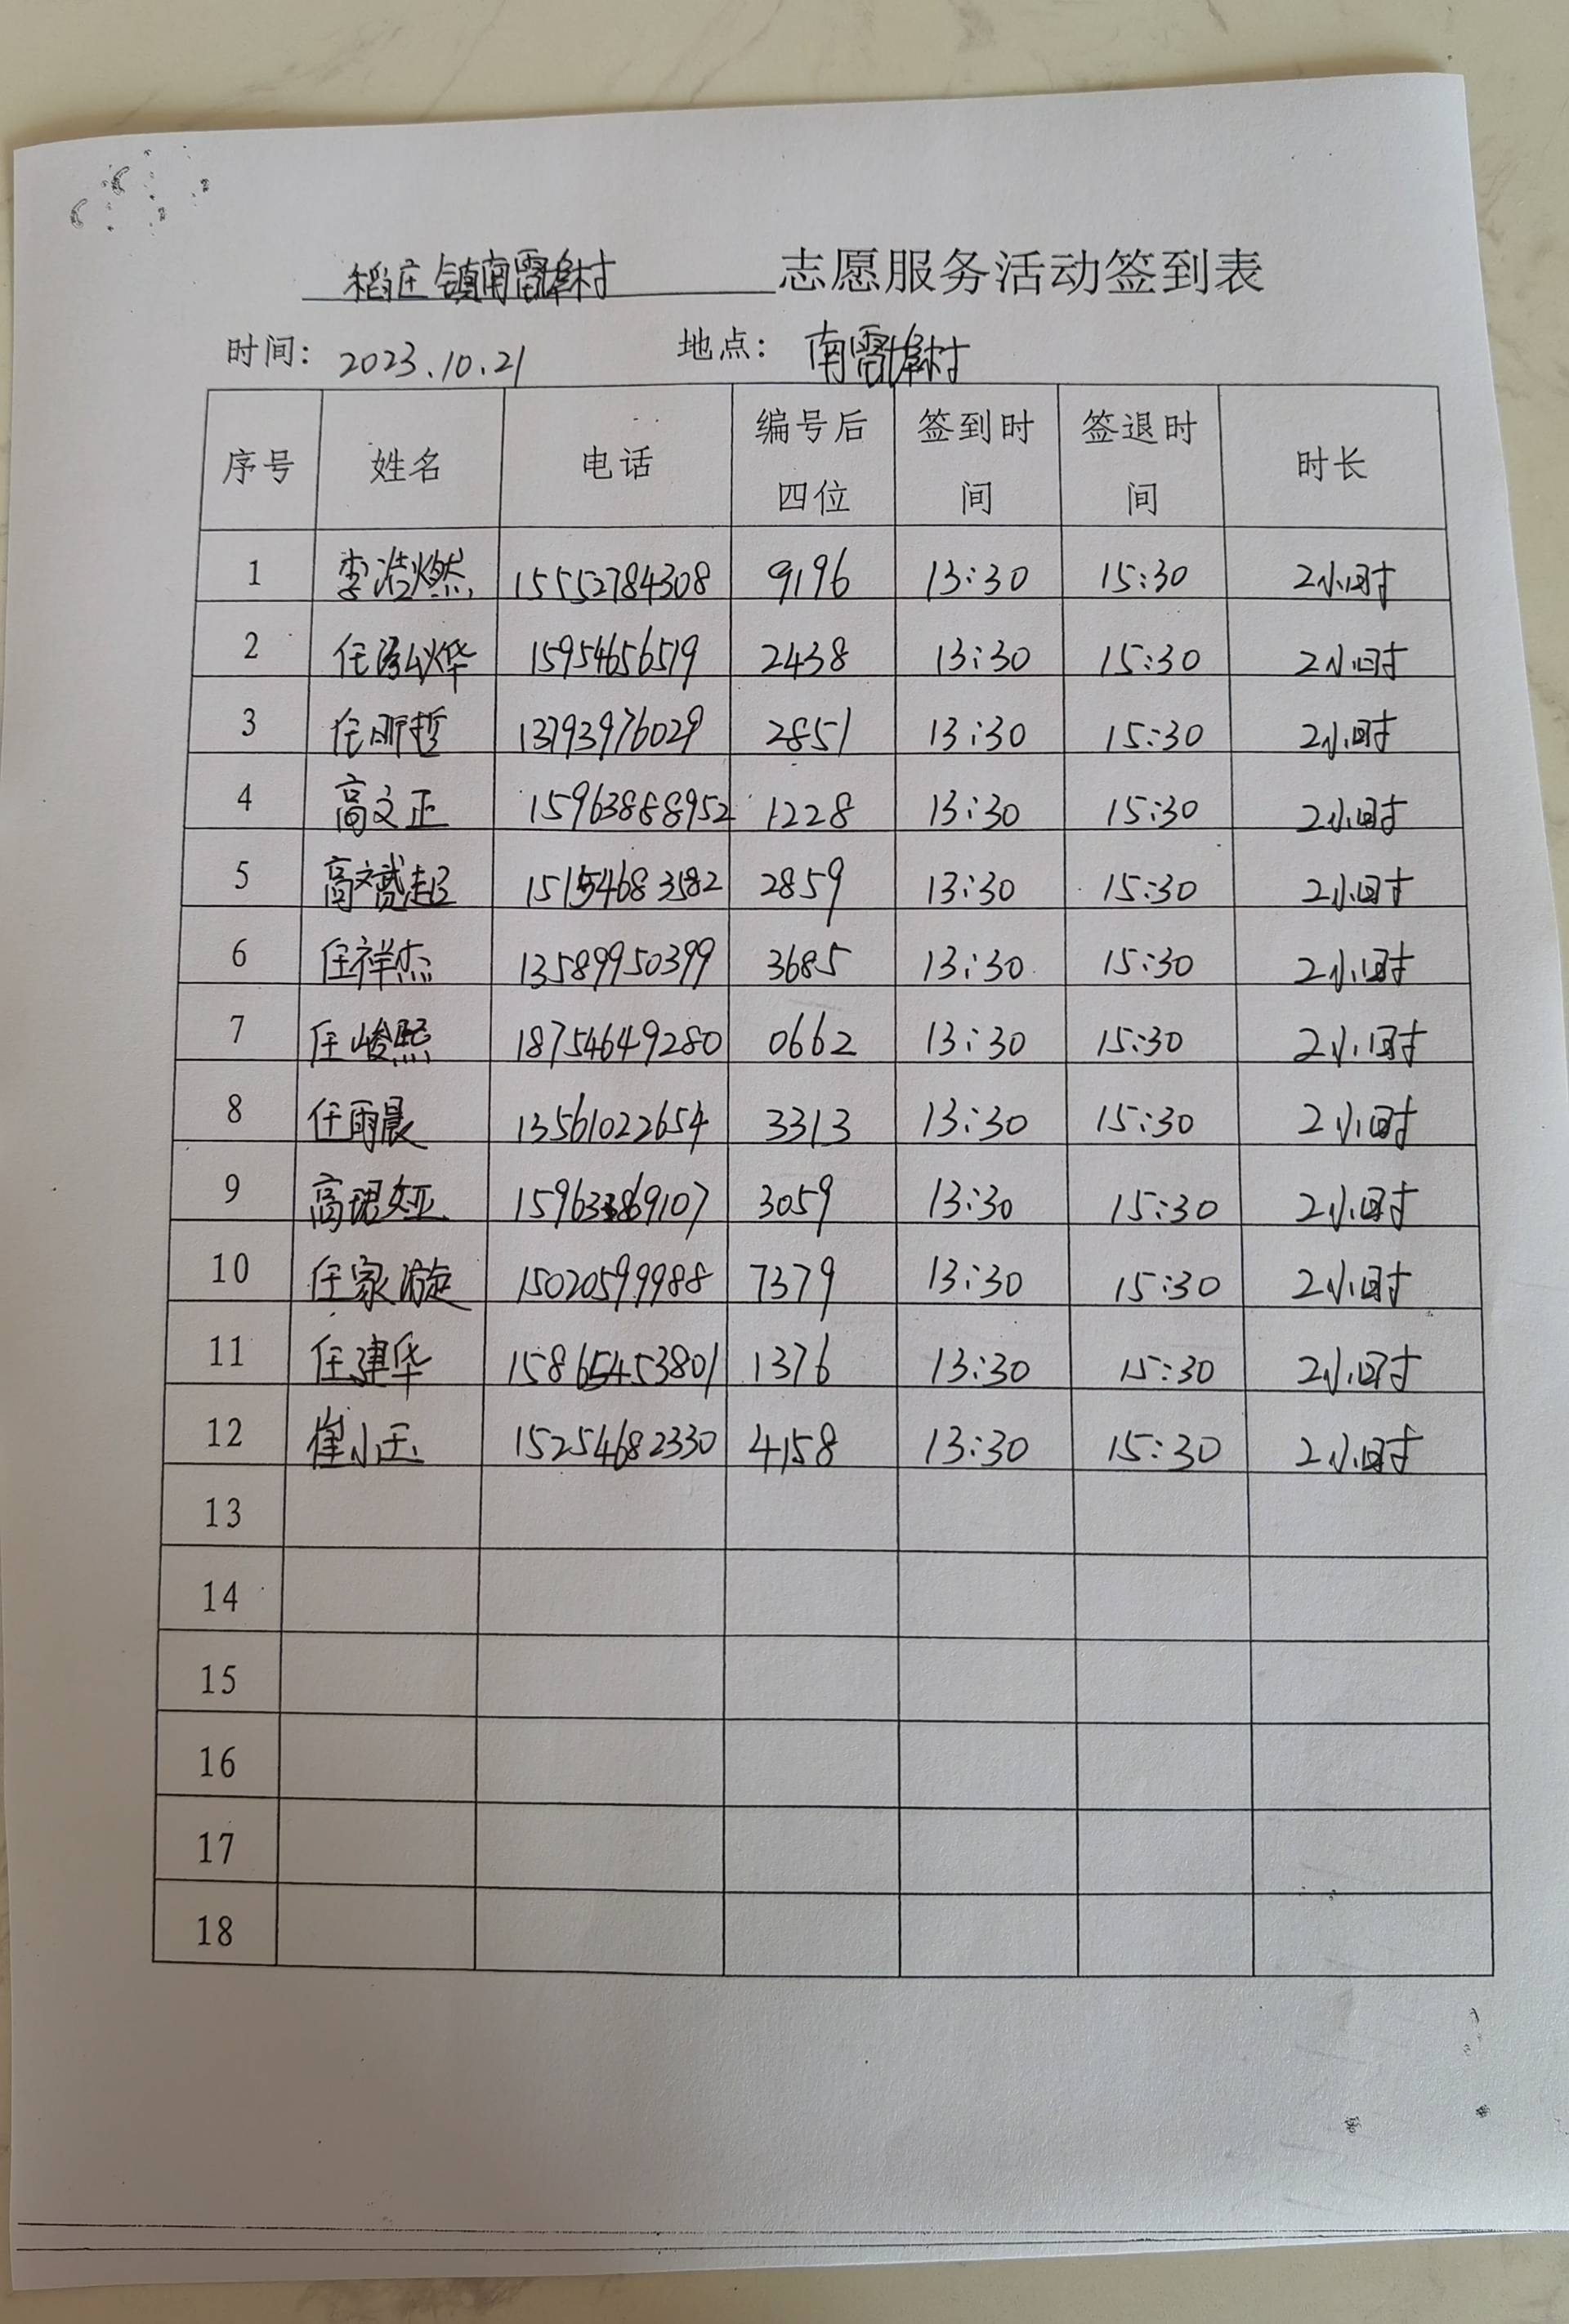 稻庄镇南雷埠村 志愿服务活动签到表
时间: 2023.10.21 地点: 南雷埠村
序号 姓名 电话 编号后四位 签到时间 签退时间 时长
1 李浩燃 15552784308 9196 13:30 15:30 2小时
2 15954656519 2438 13:30 15:30 2小时
3 13793976029 2851 13:30 15:30 2小时
4 高文正 15963888952 1228 13:30 15:30 2小时
5 15154683582 2859 13:30 15:30 2小时
6 任祥杰 13589950399 3685 13:30 15:30 2小时
7 任峻熙 18754649280 0662 13:30 15:30 2小时
8 任雨晨 13561022654 3313 13:30 15:30 2小时
9 高珺娅 3059 13:30 15:30 2小时
10 任家漩 15020599988 7379 13:30 15:30 2小时
11 任建华 15865453801 1376 13:30 15:30 2小时
12 崔小玉 15254682330 4158 13:30 15:30 2小时
13
14
15
16
17
18